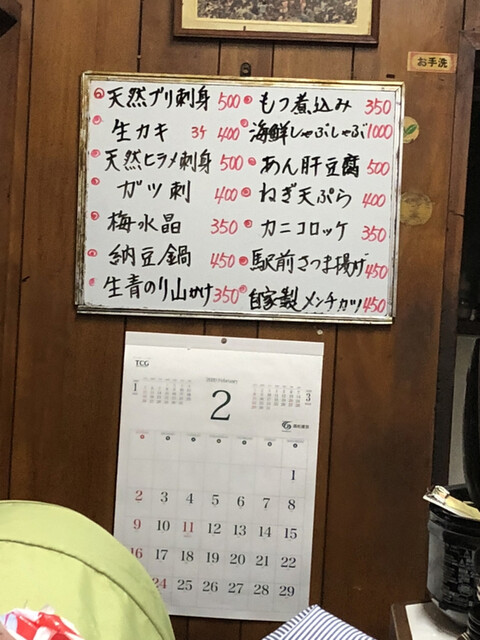 お手洗
天然ブリ刺身 500
生カキ 3ヶ 400
天然ヒラメ刺身 500
ガツ刺 400
梅水晶 350
納豆鍋 450
生青のり山かけ 350
もつ煮込み 350
海鮮しゃぶしゃぶ 1000
あん肝豆腐 500
ねぎ天ぷら 400
カニコロッケ 350
駅前さつま揚げ 450
自家製メンチカツ 450
TCG
1
2020 February
3
2
1
2 3 4 5 6 7 8
9 10 11 12 13 14 15
16 17 18 19 20 21 22
24 25 26 27 28 29